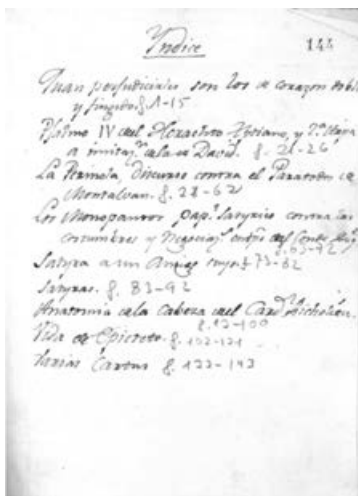 Yndice 144
Quan perjudiciales son los de corazon doble
y fingido. f. 1-15
Psalmo IV del Heraclito Xtiano, y 2ª
a imitaz.n de la de David. f. 21-26
La Perinola, Discurso contra el Paratodos de
Montalvan. f. 28-62
Los Monopantos pap.l Satyrico contra las
costumbres y
f. 63-72
Satyra a un Amigo suyo f. 73-82
Satyras. f. 83-92
Anatomia de la Cabeza del Card.l Richelieu.
f. 93-100
Vida de Epicteto. f. 102-121
Varias Cartas f. 122-143